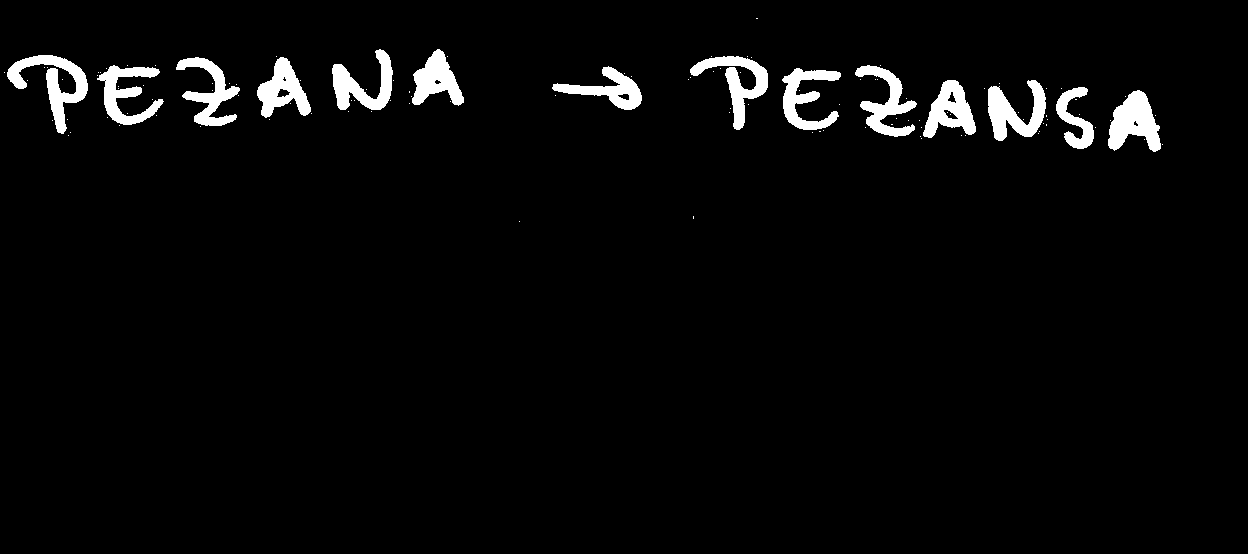 PEZANA → PEZANSA